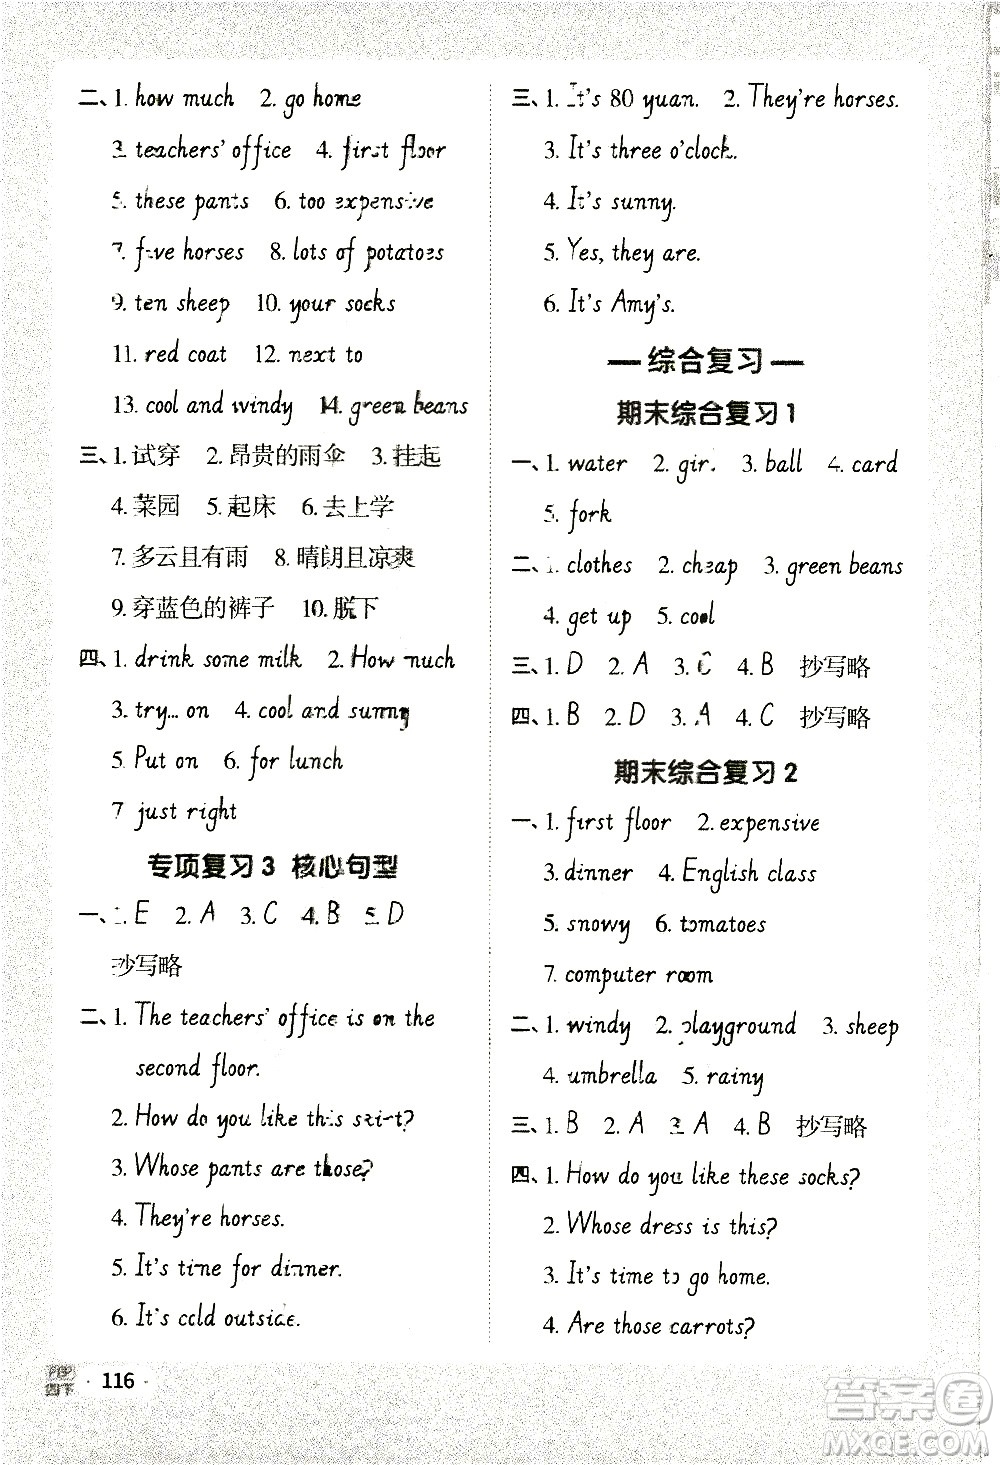 二、1. how much 2. go home
3. teachers' office 4. first floor
5. these pants 6. too expensive
7. five horses 8. lots of potatoes
9. ten sheep 10. your socks
11. red coat 12. next to
13. cool and windy 14. green beans
三、1. 试穿 2. 昂贵的雨伞 3. 挂起
4. 菜园 5. 起床 6. 去上学
7. 多云且有雨 8. 晴朗且凉爽
9. 穿蓝色的裤子 10. 脱下
四、1. drink some milk 2. How much
3. try... on 4. cool and sunny
5. Put on 6. for lunch
7. just right
专项复习3 核心句型
一、1. E 2. A 3. C 4. B 5. D
抄写略
二、1. The teachers' office is on the
second floor.
2. How do you like this skirt?
3. Whose pants are those?
4. They're horses.
5. It's time for dinner.
6. It's cold outside.
三、1. It's 80 yuan. 2. They're horses.
3. It's three o'clock.
4. It's sunny.
5. Yes, they are.
6. It's Amy's.
综合复习
期末综合复习1
一、1. water 2. girl 3. ball 4. card
5. fork
二、1. clothes 2. cheap 3. green beans
4. get up 5. cool
三、1. D 2. A 3. C 4. B 抄写略
四、1. B 2. D 3. A 4. C 抄写略
期末综合复习2
一、1. first floor 2. expensive
3. dinner 4. English class
5. snowy 6. tomatoes
7. computer room
二、1. windy 2. playground 3. sheep
4. umbrella 5. rainy
三、1. B 2. A 3. A 4. B 抄写略
四、1. How do you like these socks?
2. Whose dress is this?
3. It's time to go home.
4. Are those carrots?
PEP
四下 · 116 ·
答案圈
MXQE.COM